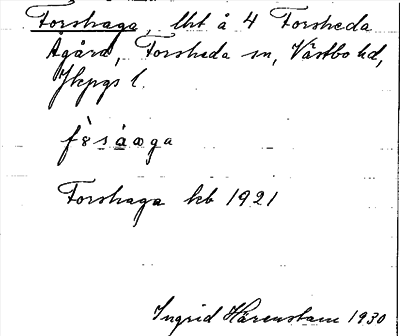 Forshaga, lht å 4 Forsheda
Ågård, Forsheda sn, Västbo hd,
Jkpgs l.
Forshaga kb 1921
Ingrid Härenstam 1930